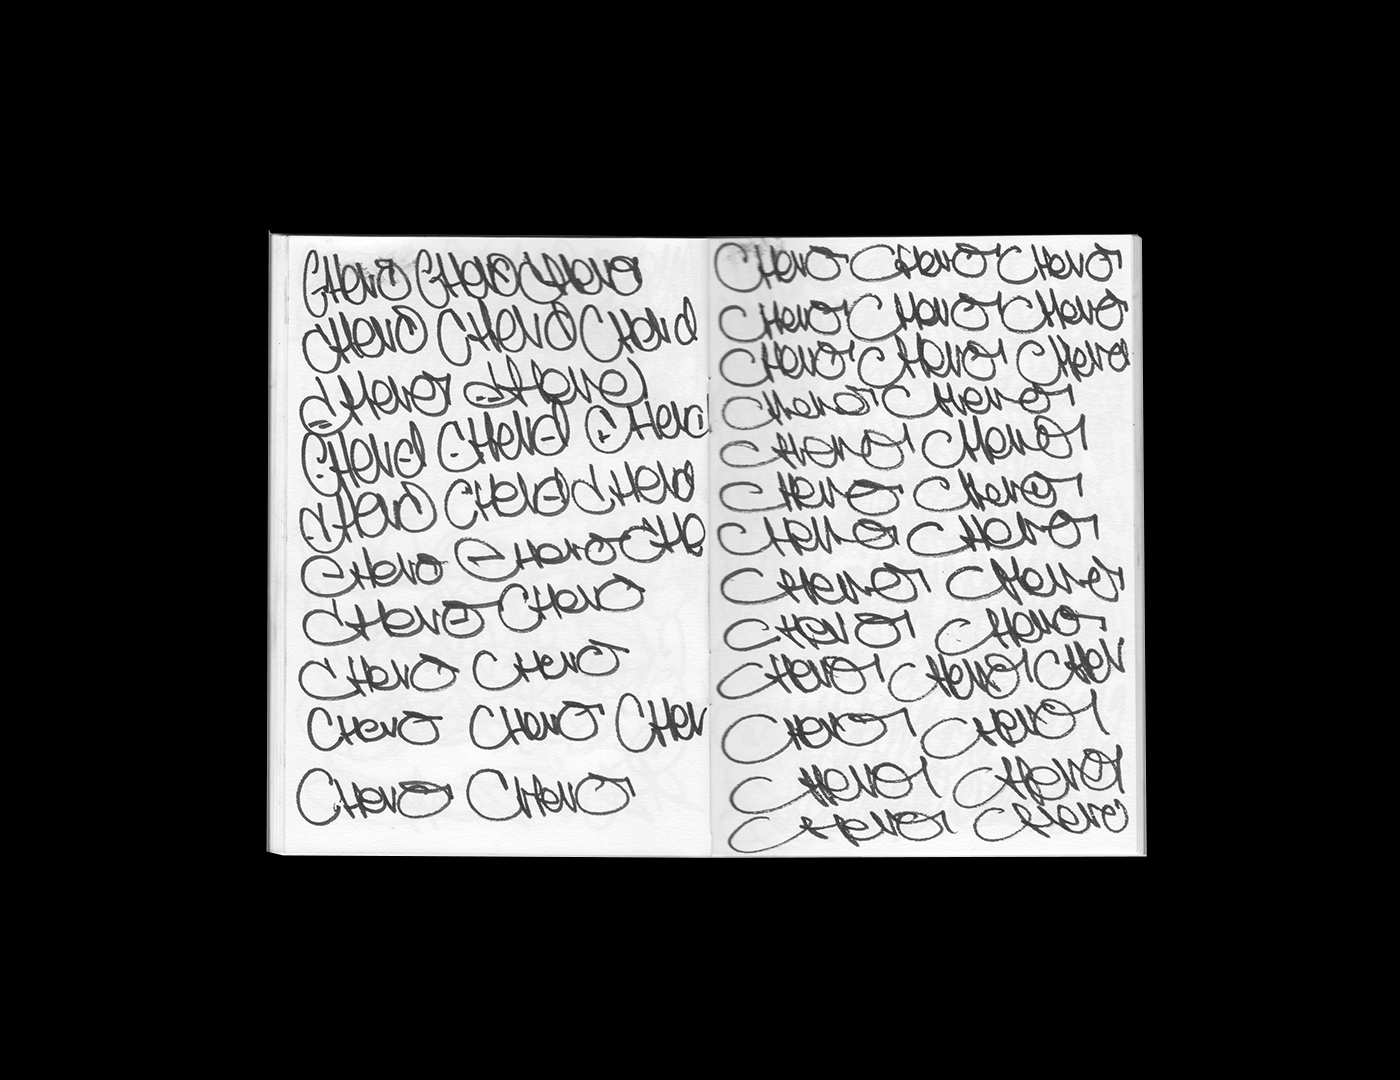 CHeno CHeno CHeno
CHeno CHeno CHeno
CHeno CHeno
CHeno CHeno CHeno
CHeno CHeno CHeno
CHeno CHeno CHe
CHeno CHeno
CHeno CHeno
CHeno CHeno CHen
CHeno CHeno
CHeno CHeno CHeno
CHeno CHeno CHeno
CHeno CHeno CHeno
CHeno CHeno
CHeno CHeno
CHeno CHeno
CHeno CHeno
CHeno CHeno
CHeno CHeno
CHeno CHeno CHen
CHeno CHeno
CHeno CHeno
CHeno CHeno